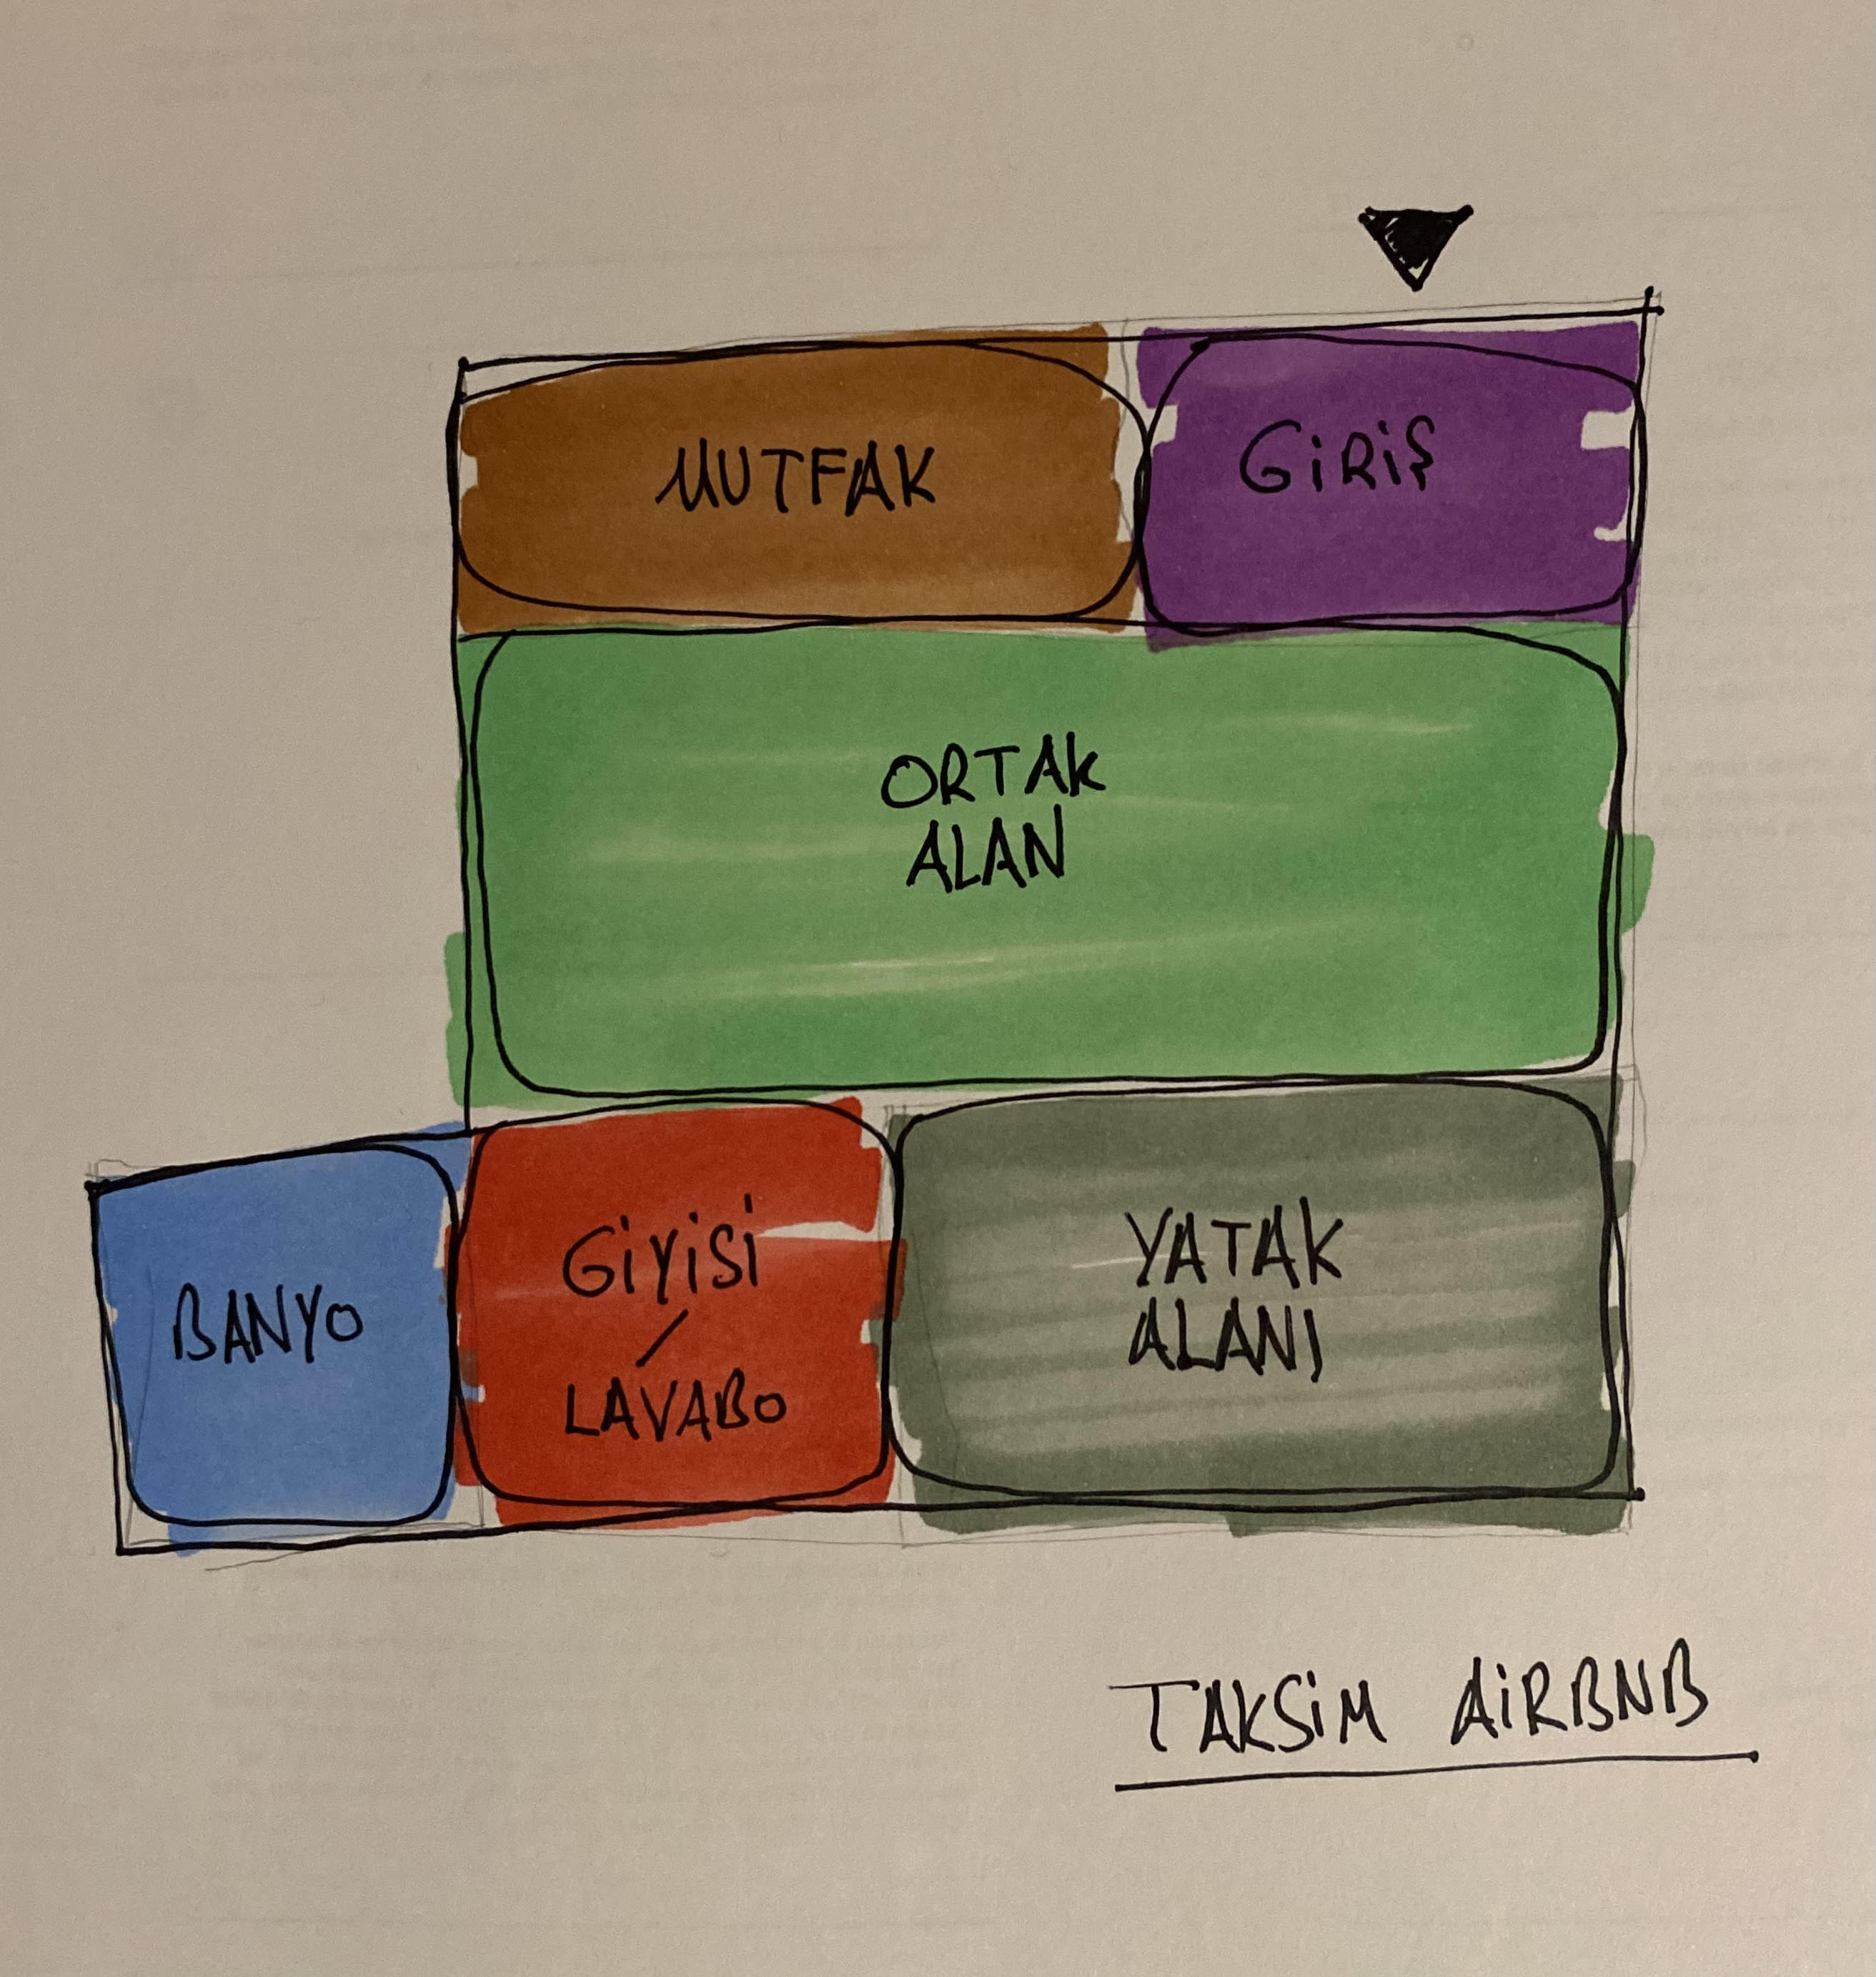 MUTFAK
GİRİŞ
ORTAK
ALAN
BANYO
GİYİSİ
/
LAVABO
YATAK
ALANI
TAKSİM AİRBNB